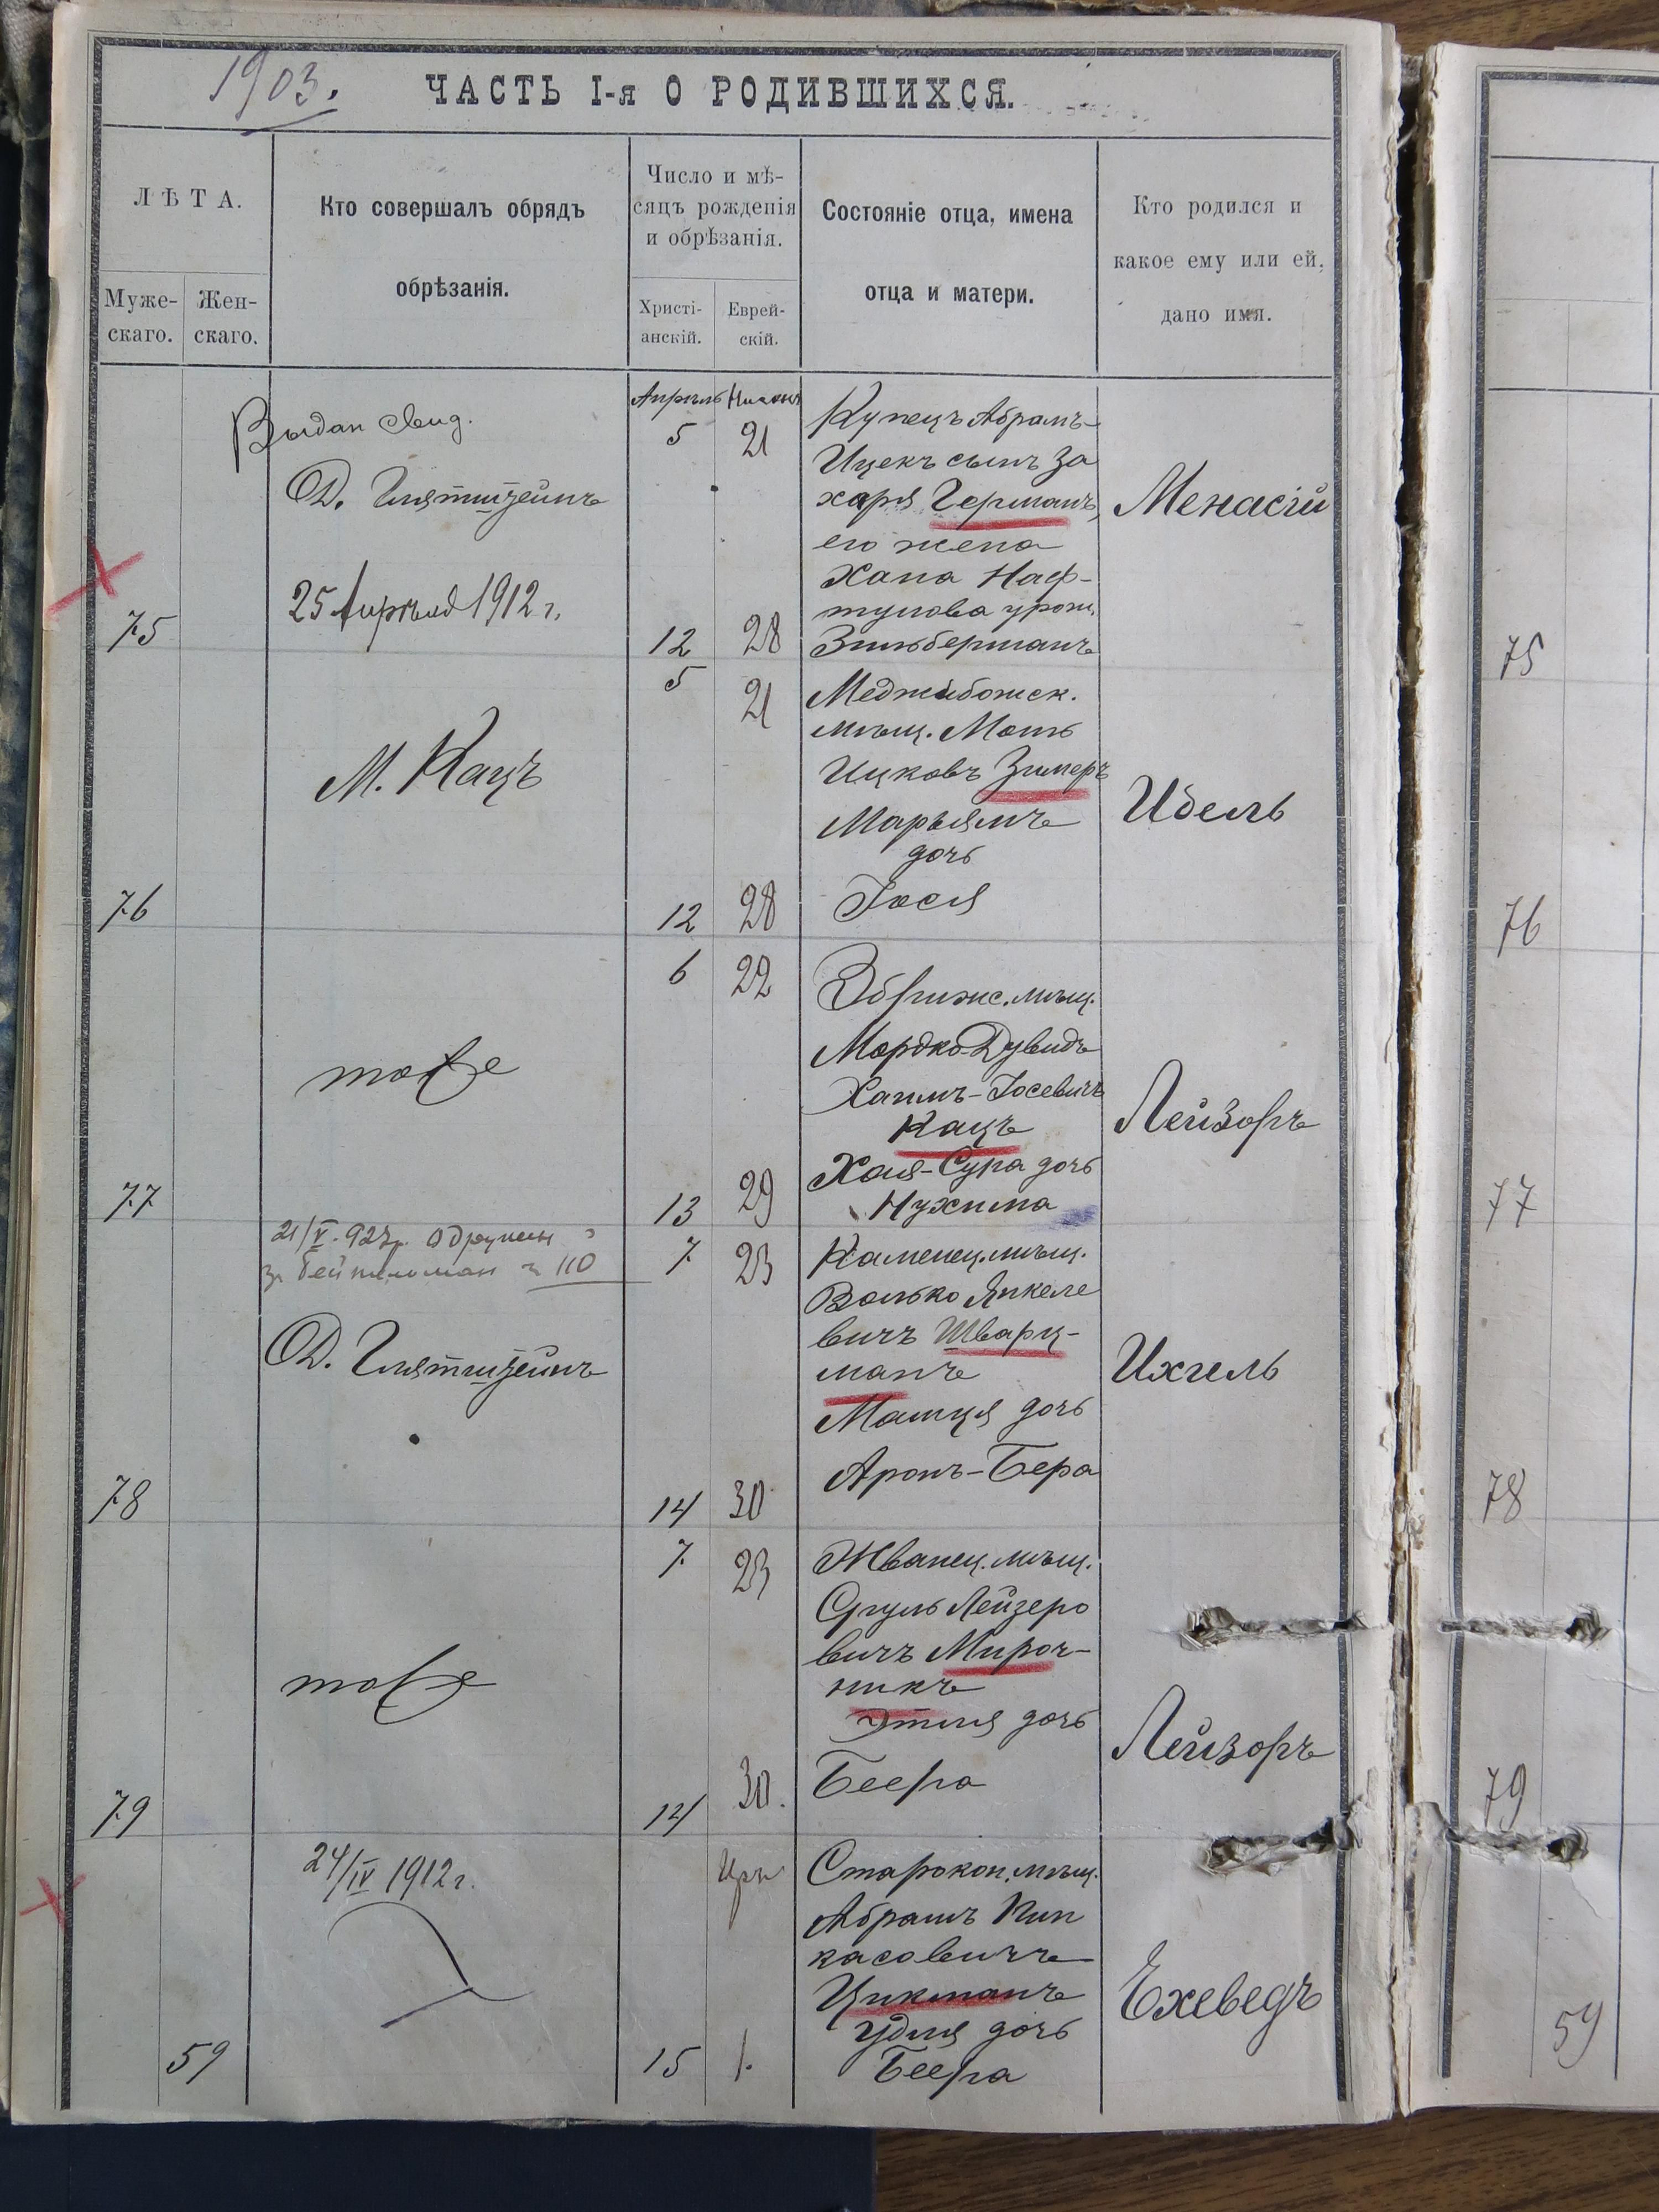 1903.
ЧАСТЬ I-я О РОДИВШИХСЯ.
ЛѢТА.
Муже-
скаго.
Жен-
скаго.
Кто совершалъ обрядъ
обрѣзанія.
Число и мѣ-
сяцъ рожденія
и обрѣзанія.
Христі-
анскій.
Еврей-
скій.
Состояніе отца, имена
отца и матери.
Кто родился и
какое ему или ей,
дано имя.
Выдан свид.
25 Апрѣля 1912 г.
75
Апрѣль
5
12
21
28
Купецъ Абрамъ-
Ицекъ сынъ За
харя Германъ,
его жена
Хана Наф-
тулова урож.
Зильберманъ
Менасій
75
М. Кацъ
76
5
12
21
28
Меджибожск.
мѣщ. Моть
Ицковъ Зимеръ
Марьямъ
дочь
Іося
Идель
76
тоже
77
6
13
22
29
мѣщ.
Мордко-Дувидъ
Хаимъ-Іосевичъ
Кацъ
Хая-Сура дочь
Нухима
Лейзоръ
77
21/V.
110
78
7
14
23
30
Каменец. мѣщ.
Волько Янкеле
вичъ Шварц-
манъ
Маня дочь
Аронъ-Бера
Ихиель
78
тоже
79
7
14
23
30.
Жванец. мѣщ.
Сруль Лейзеро
вичъ Мироч-
никъ
Этля дочь
Беера
Лейзоръ
79
24/IV 1912 г.
59
15
1.
Старокон. мѣщ.
Абрамъ Пин
касовичъ
Цикманъ
Удля дочь
Беера
Ехеведъ
59